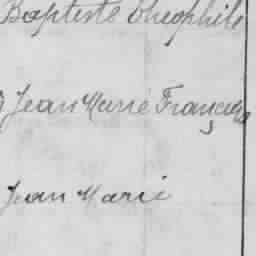 Baptiste Théophile
Jean Marie François
Jean Marie